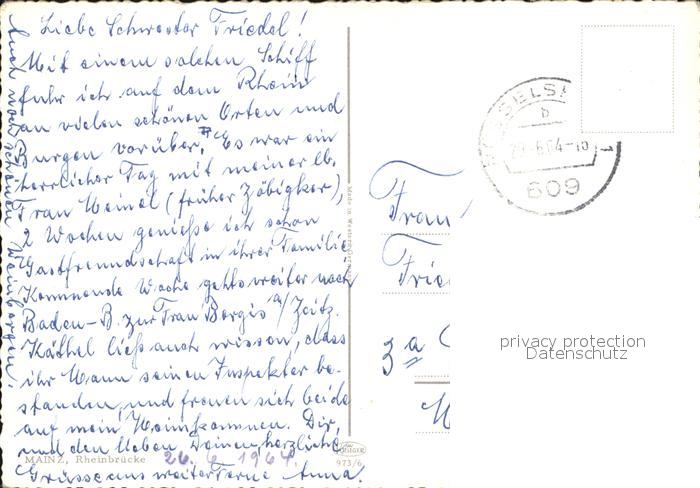 Liebe Schwester Friedel!
Mit einem solchen Schiff
fuhr ich auf dem Rhein
an vielen schönen Orten und
Burgen vorüber. Es war ein
herrlicher Tag mit meiner lb.
Frau Meinel (früher Zöbigker),
2 Wochen genieße ich schon
Gastfreundschaft in ihrer Familie
Kommende Woche gehts weiter nach
Baden-B. zur Frau Borgis a/Zeitz.
Käthel ließ auch wissen, dass
ihr Mann seinen Inspektor be-
standen, und freuen sich beide
auf mein Heimkommen. Dir,
und den lieben Deinen herzliche
Grüsse aus weiter Ferne Anna.
auch noch schönen Weinbergen.
MAINZ, Rheinbrücke
26. 6. 1964.
973/6
Made in Western
Frau
Frie
3a
SELS
b
29.6.64-16
609
privacy protection
Datenschutz